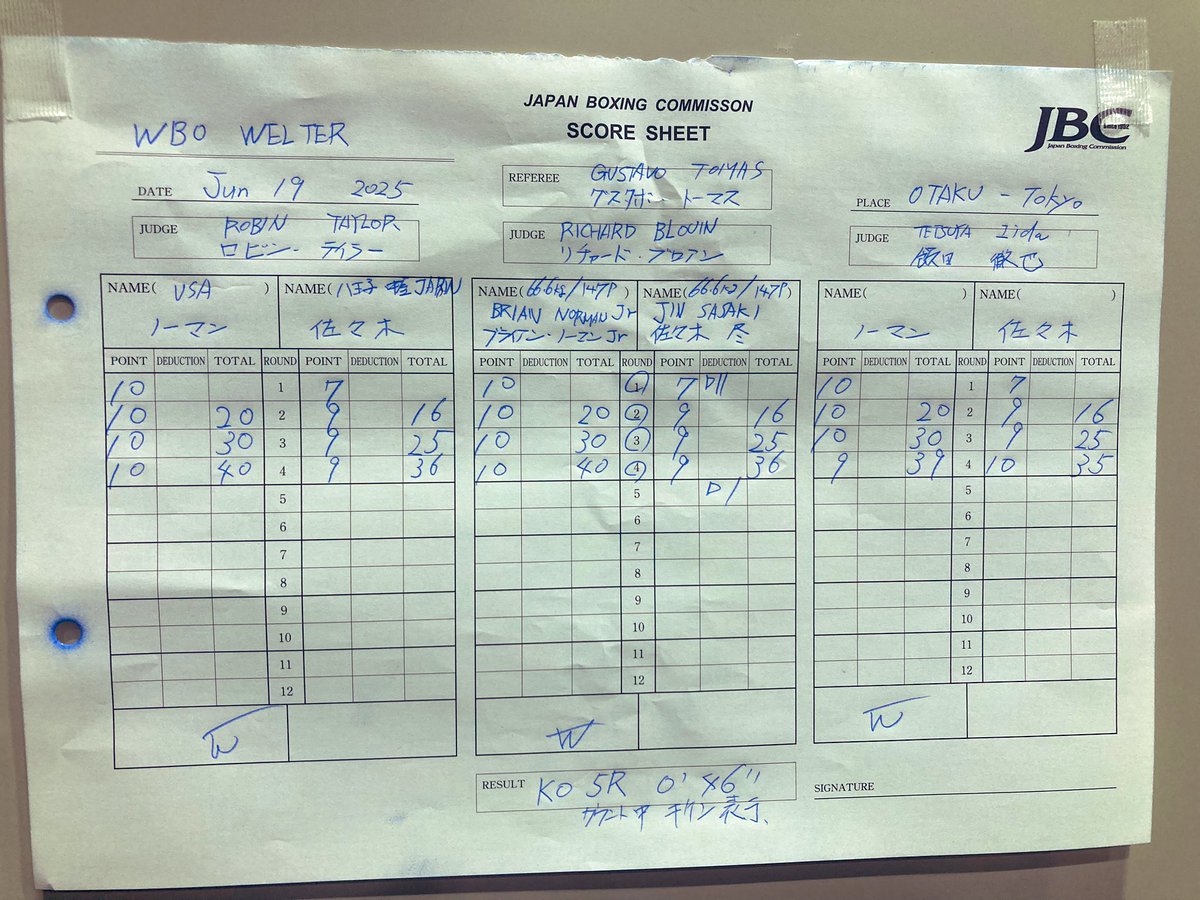 JAPAN BOXING COMMISSON
SCORE SHEET
JBC
Since 1952
Japan Boxing Commission
WBO WELTER
DATE Jun 19 2025
REFEREE GUSTAVO TOMAS
グスタボ・トーマス
PLACE OTAKU - Tokyo
JUDGE ROBIN TAYLOR
ロビン・テイラー
JUDGE RICHARD BLOUIN
リチャード・ブロアン
JUDGE TETSUYA Iida
飯田 徹也
NAME( USA ) NAME( 八王子中屋 JAPAN
ノーマン 佐々木
NAME(66.6kg/147P) NAME(66.6kg/147P)
BRIAN NORMAN Jr JIN SASAKI
ブライアン・ノーマンJr 佐々木 尽
NAME( ) NAME( )
ノーマン 佐々木
POINT DEDUCTION TOTAL ROUND POINT DEDUCTION TOTAL
10 1 7
10 20 2 9 16
10 30 3 9 25
10 40 4 9 36
5
6
7
8
9
10
11
12
W
POINT DEDUCTION TOTAL ROUND POINT DEDUCTION TOTAL
10 1 7 D11
10 20 2 9 16
10 30 3 9 25
10 40 4 9 36
5 D1
6
7
8
9
10
11
12
W
POINT DEDUCTION TOTAL ROUND POINT DEDUCTION TOTAL
10 1 7
10 20 2 9 16
10 30 3 9 25
9 39 4 10 35
5
6
7
8
9
10
11
12
W
RESULT KO 5R 0'46"
カウント中 キケン表示、
SIGNATURE